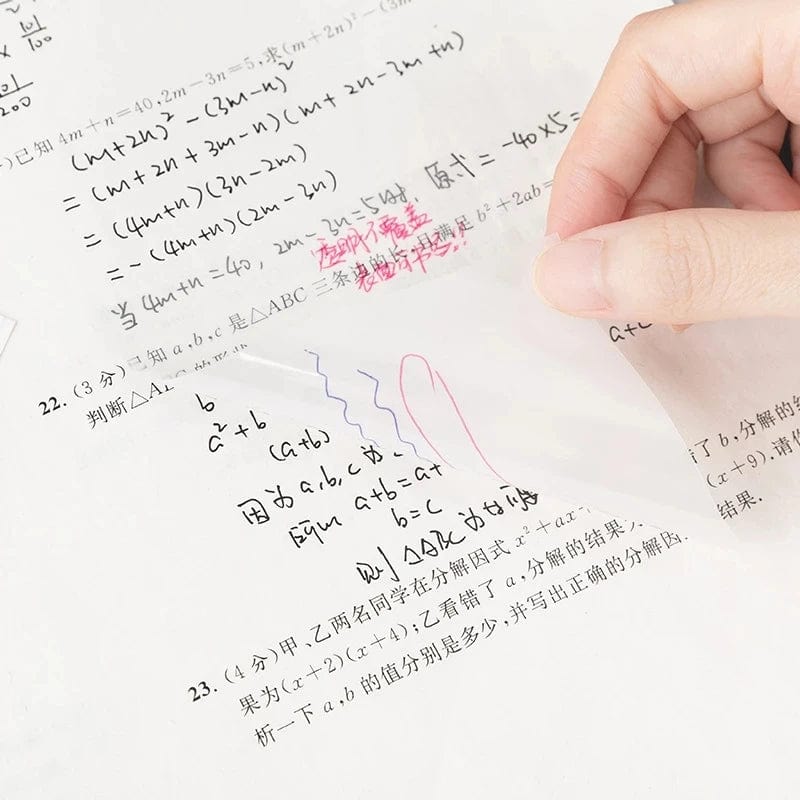 × 101/100
101/200
)已知 4m+n=40,2m−3n=5,求(m+2n)²−(3m
(m+2n)² − (3m−n)²
= (m+2n+3m−n)(m+2n−3m+n)
= (4m+n)(3n−2m)
= −(4m+n)(2m−3n)
当 4m+n=40, 2m−3n=5时, 原式 = −40×5=
透明不覆盖
表面可书写!!
22. (3 分) 已知 a,b,c 是△ABC 三条边的长,且满足 b²+2ab=
判断△ABC 的形状
a+c
b
a²+b
(a+b)
因为 a,b,c 为
所以 a+b=a+
b=c
则 △ABC 为等腰
23. (4 分)甲、乙两名同学在分解因式 x²+ax
了 b,分解的结
果为(x+2)(x+4);乙看错了 a,分解的结果
(x+9).请你
析一下 a,b 的值分别是多少,并写出正确的分解因
结果.